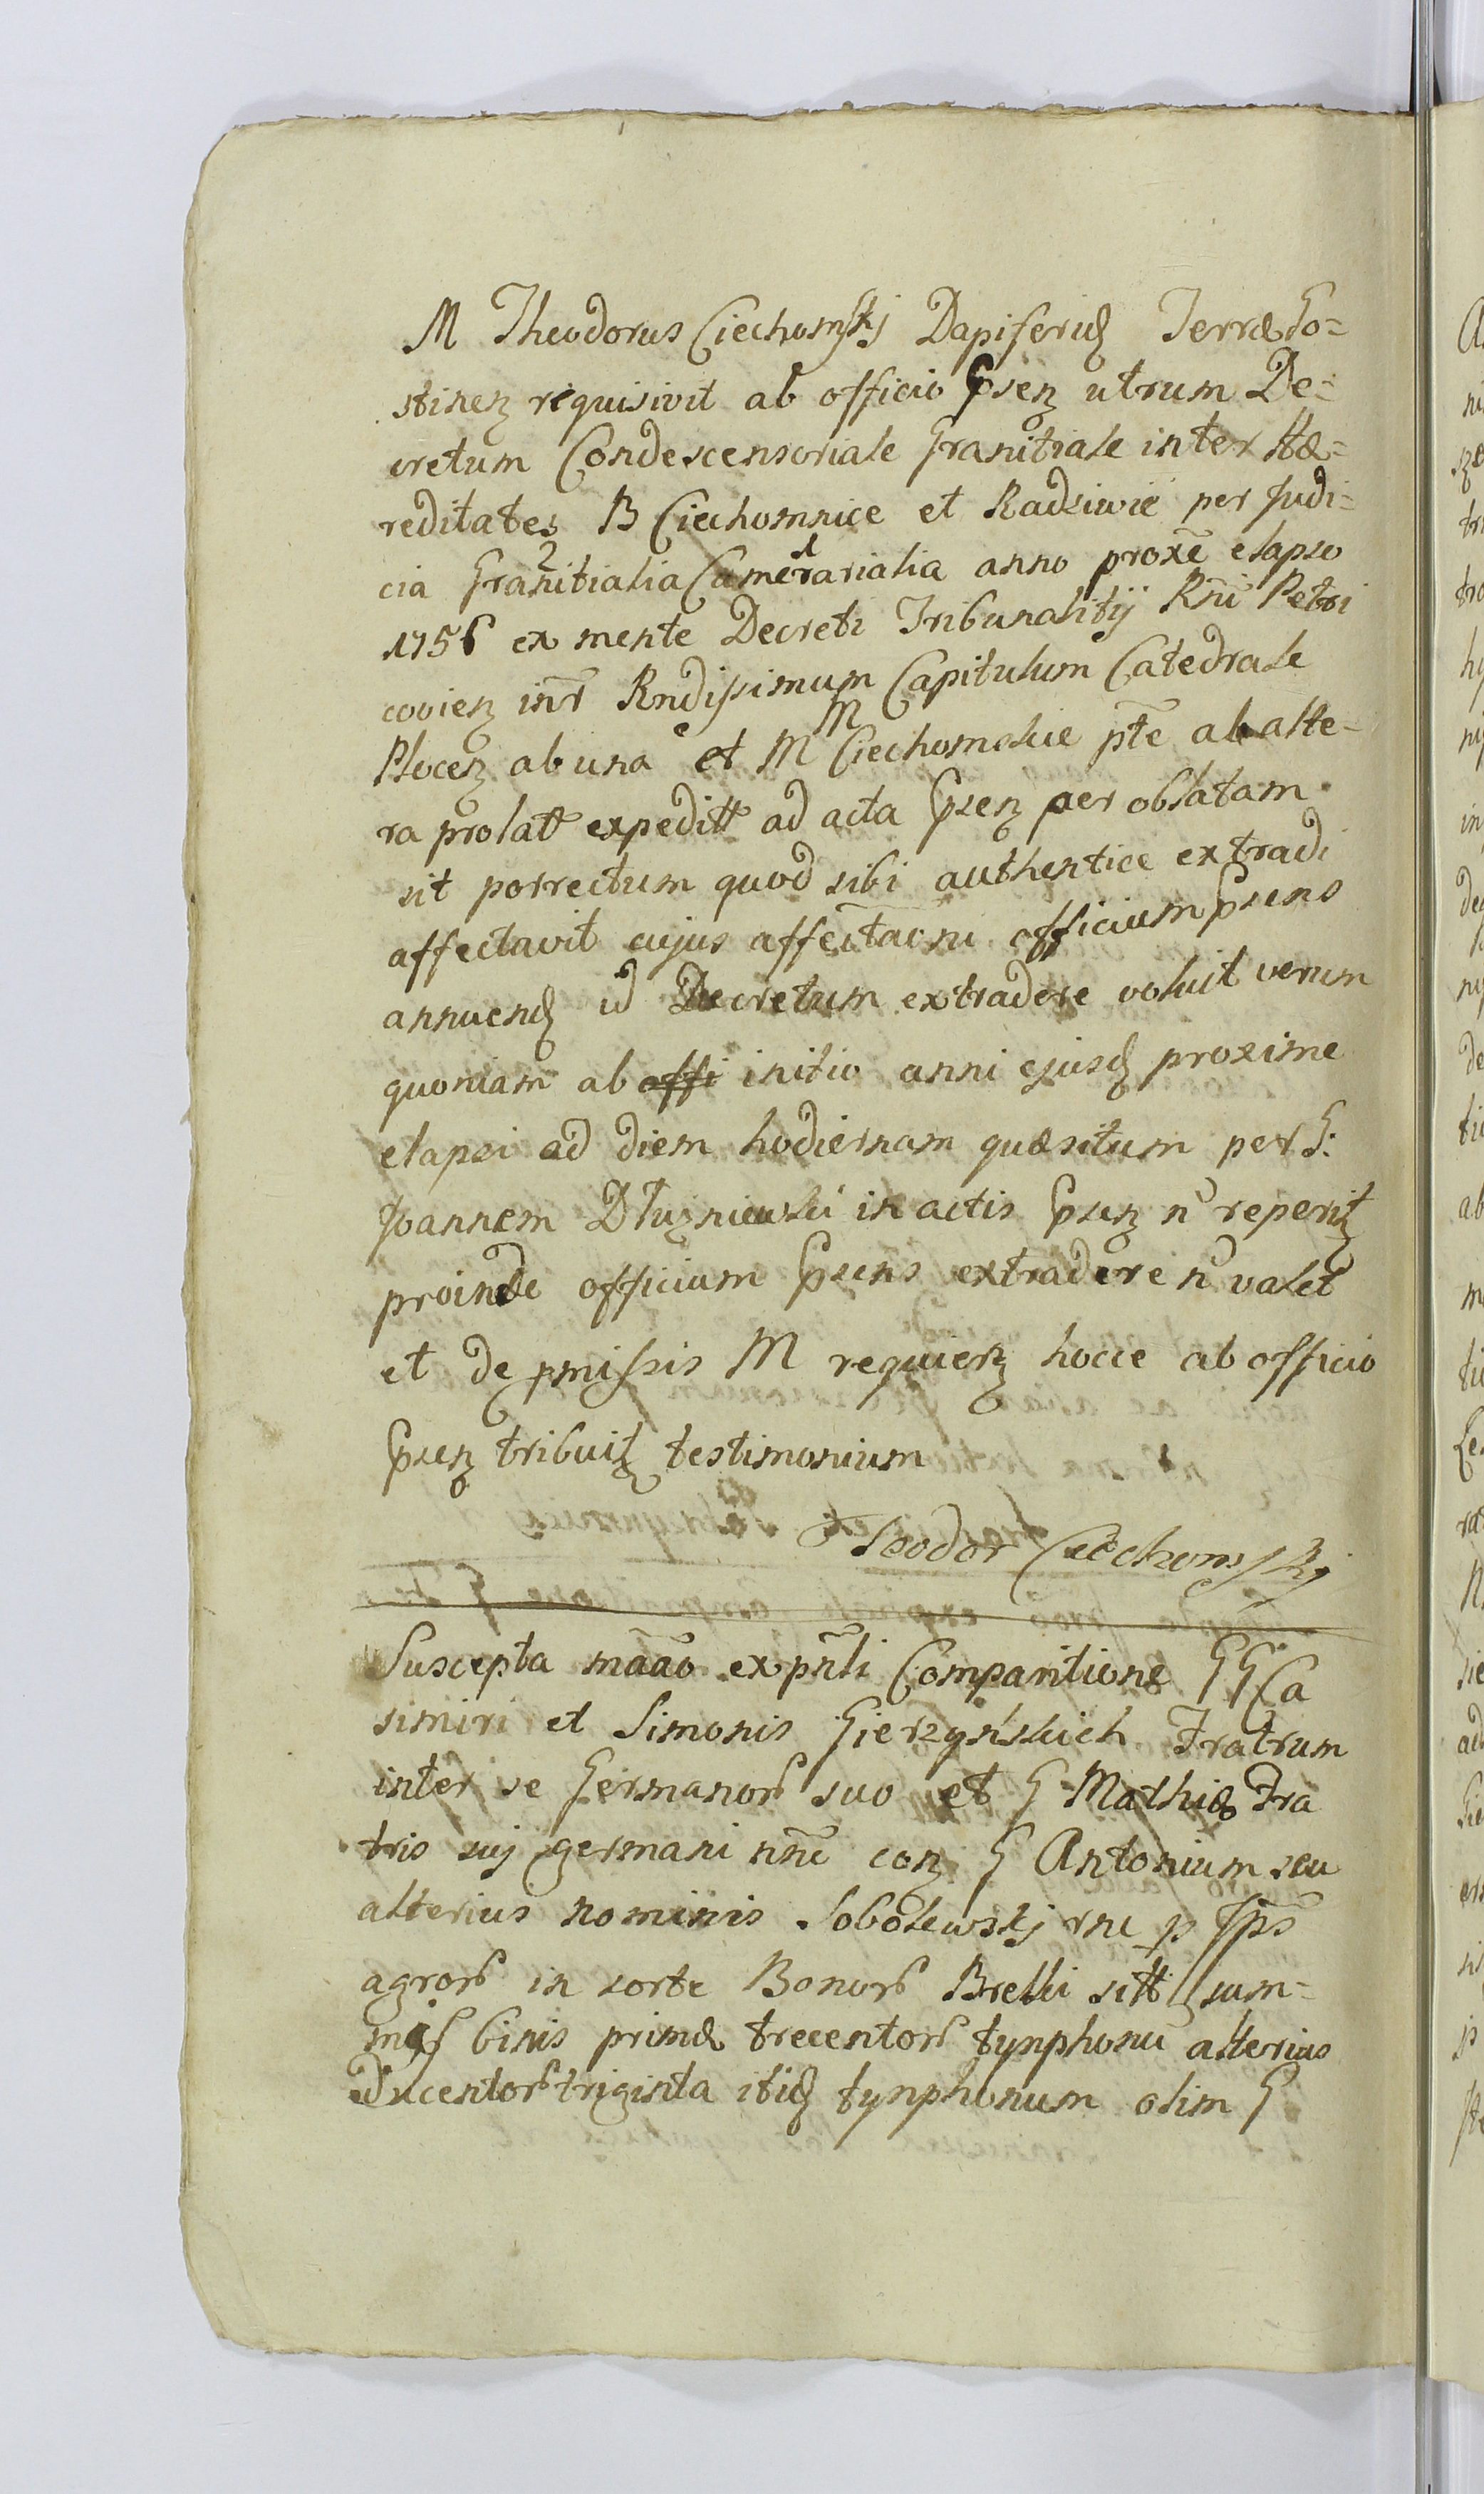 M Theodorus Ciechomskj Dapiferid Terræ Go-
stinen requisivit ab officio psen utrum De-
cretum Condescensoriale Granitiale inter Hæ-
reditates B Ciechomnice et Radziwie per Judi-
cia Granitialia Camerarialia anno proxe elapso
1756 ex mente Decreti Tribunalitij Rni Petri
covien intr Rndissimum Capitulum Catedrale
Plocen ab una et M M Ciechomskie pte ab alte-
ra prolatt expeditt ad acta psen per oblatam
sit porrectum quod sibi authentice extradi
affectavit cujus affectaoni officium psens
annuend id Decretum extradere voluit verum
quoniam ab offi initio anni ejusd proxime
elapsi ad diem hodiernam quæsitum per G:
Joannem Dłuzniewski in actis psen n reperit
proinde officium psens extradere n valet
et de pmissis M requien hocce ab officio
psen tribuit testimonium
Teodor Ciechomskj
Suscepta maao ex pnli Comparitione G G Ca
simiri et Simonis Gierzyńskich Fratrum
inter se Germanor suo et G Mathiæ Fra
tris suj germani nne con G Antonium seu
alterius nominis Sobolewskj rne p
agror in sorte Bonor Brelki sitt sum-
mis binis primæ trecentor tynphonu alterius
Ducentor triginta itid tynphonum olim G